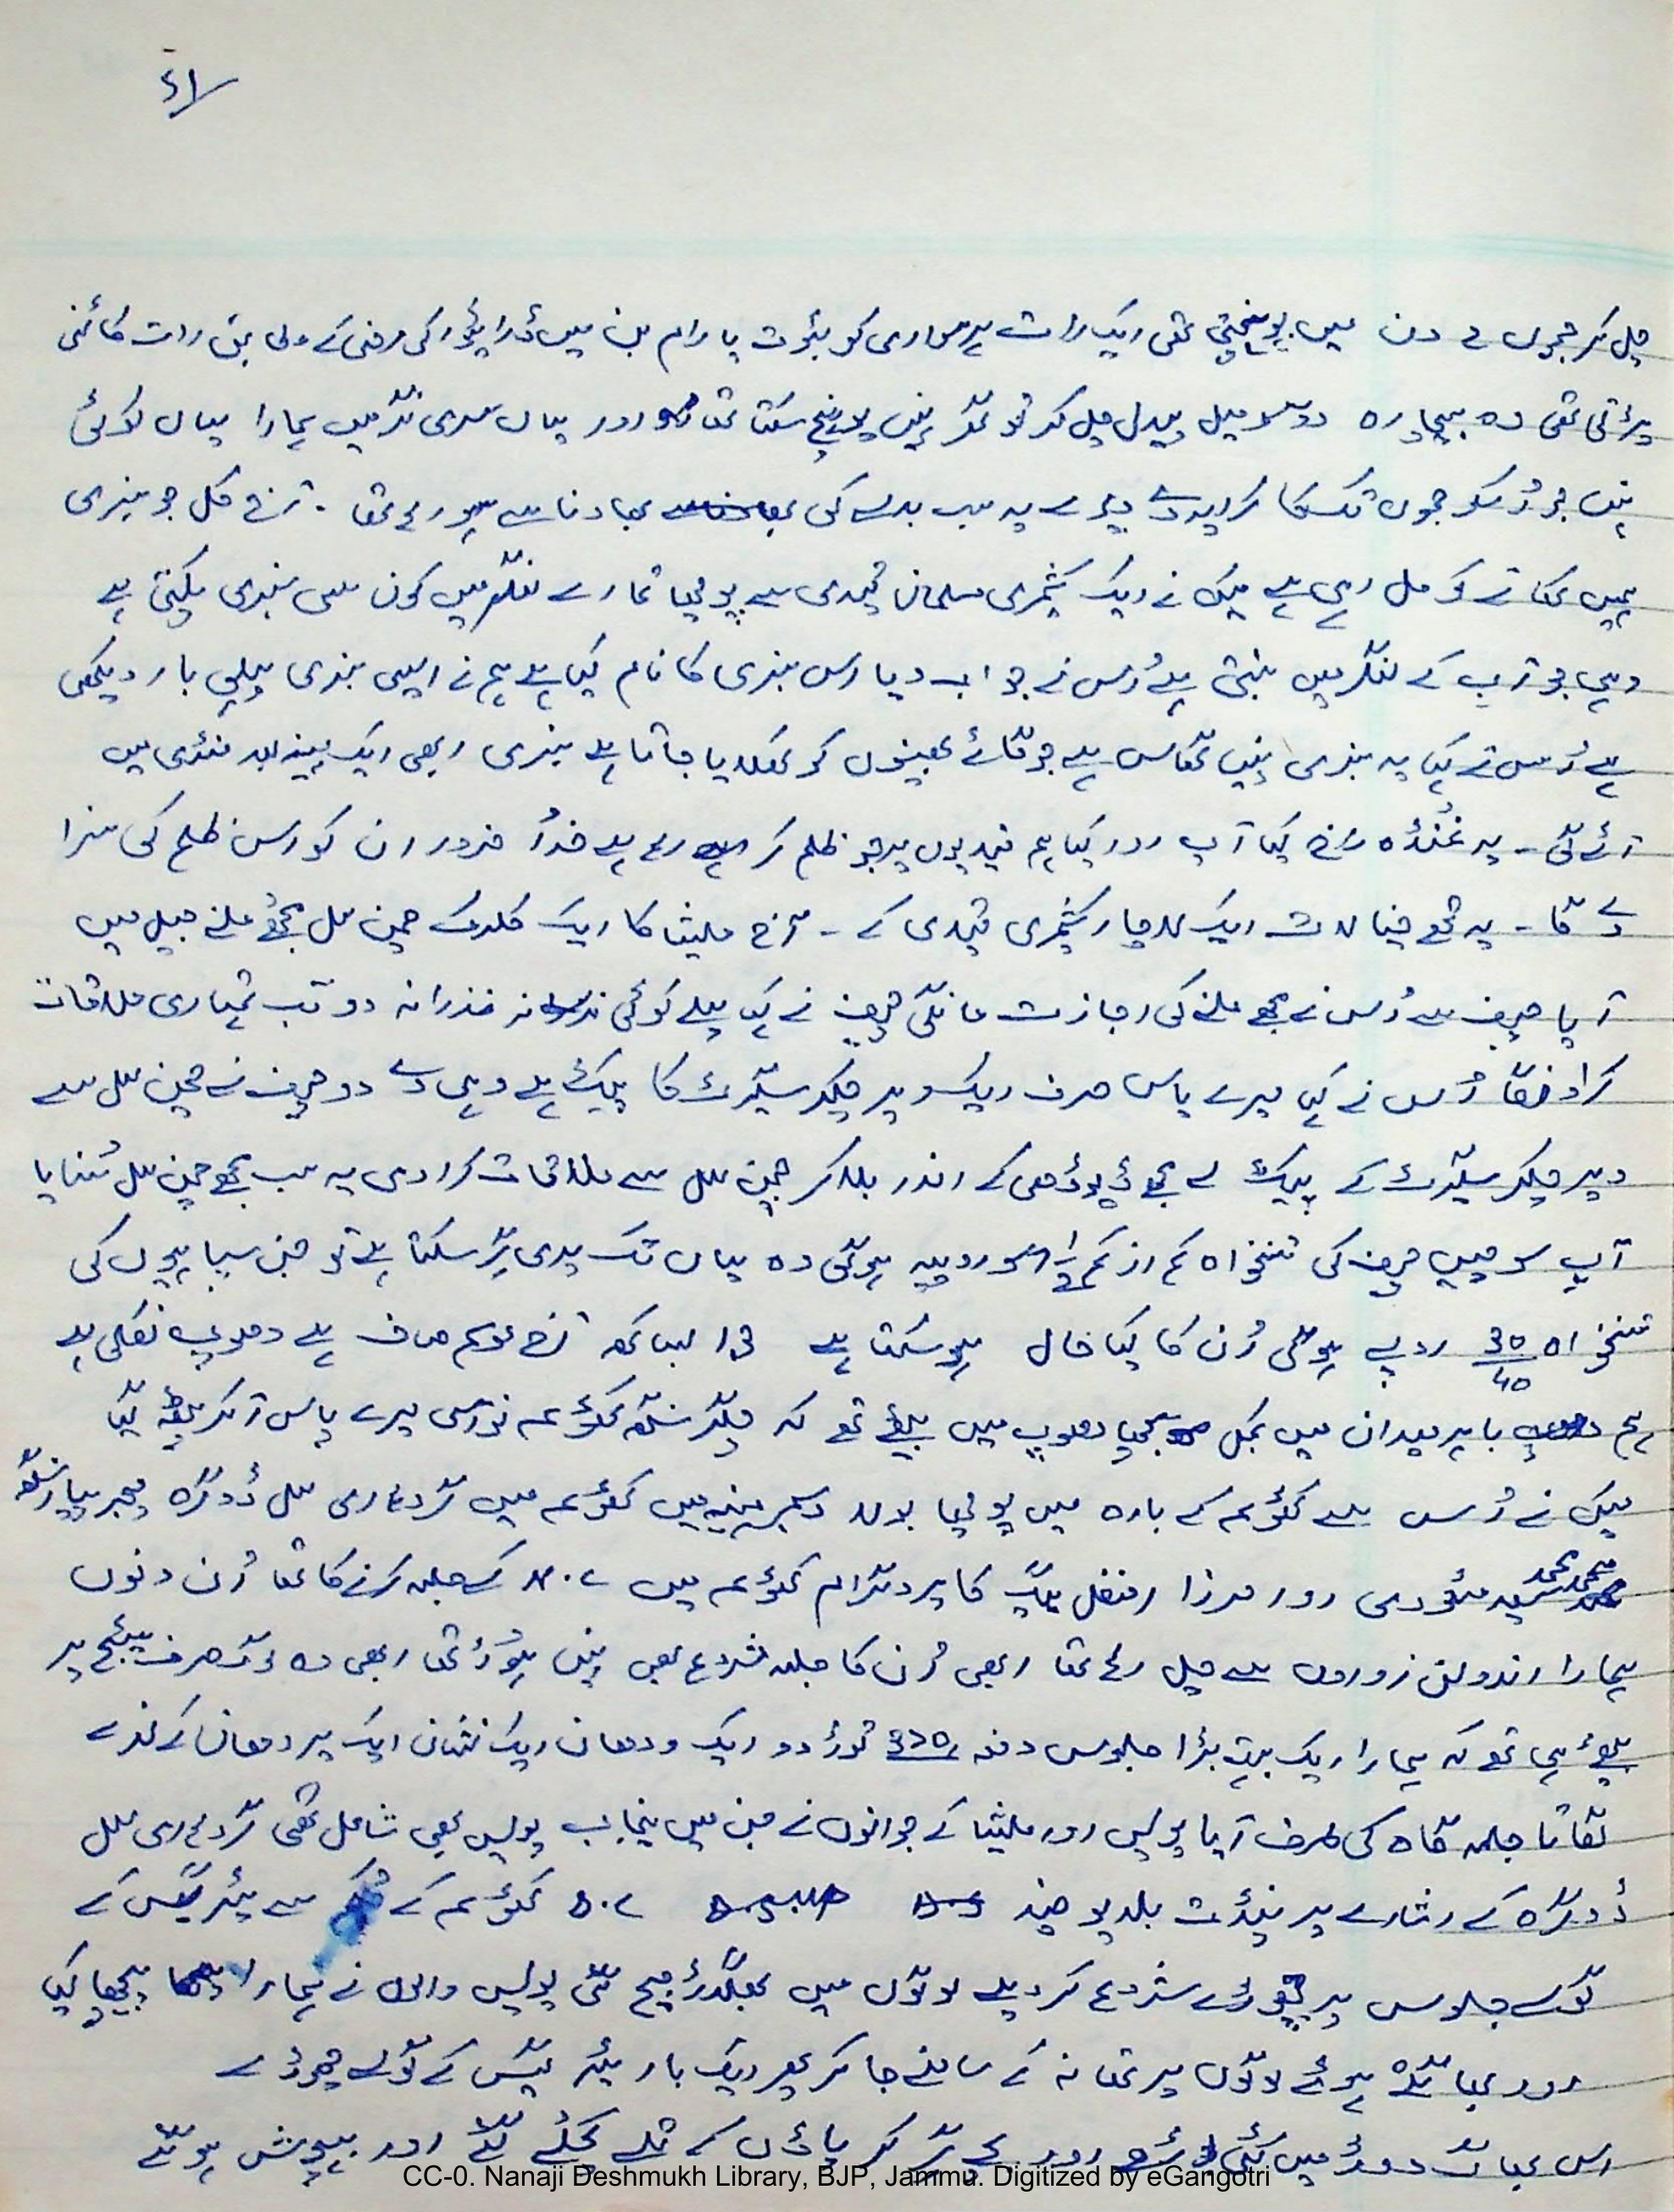 چل کر جموں 2 دن میں پہنچتی تھی ایک رات ہر سواری کو بٹوت یا رام بن میں ڈرائیور کی مرضی کے مطابق رات کاٹنی
پڑتی تھی وہ بیچارہ دو سو میل پیدل چل کر تو گھر نہیں پہنچ سکتا تھا اور یہاں سری نگر میں ہمارا یہاں کوئی
نہیں جو اُسکو جموں تک کا کرایہ دے دے یہ سب بدلے کی بھاونا سے ہو رہا تھا ۔ آج کل جو سبزی
ہمیں کھانے کو مل رہی ہے میں نے ایک کشمیری مسلمان قیدی سے پوچھا تمہارے لنگر میں کون سی سبزی پکتی ہے
وہی جو آپ کے لنگر میں بنتی ہے اُس نے جواب دیا اس سبزی کا نام کیا ہے ہم نے ایسی سبزی پہلی بار دیکھی
ہے اُس نے کہا یہ سبزی نہیں گھاس ہے جو گائے بھینسوں کو کھلایا جاتا ہے سبزی ابھی ایک مہینہ بعد منڈی میں
آئے گی ۔ یہ غنڈہ راج کیا آپ اور کیا ہم قیدیوں پر جو ظلم کر رہا ہے خدا ضرور ان کو اس ظلم کی سزا
دے گا ۔ یہ تھے خیالات ایک لاچار کشمیری قیدی کے ۔ آج ملیشا کا ایک کلرک چمن لال مجھے ملنے جیل میں
آیا چیف سے اُس نے مجھے ملنے کی اجازت مانگی چیف نے کہا پہلے کوئی نذر نذرانہ دو تب تمہاری ملاقات
کرا دونگا اُس نے کہا میرے پاس صرف ایک پیکٹ سگریٹ کا پیکٹ ہے وہی دے دو چیف نے چمن لال سے
سگریٹ کے پیکٹ لے مجھے ڈیوڑھی کے اندر بلا کر چمن لال سے ملاقات کرا دی یہ سب مجھے چمن لال سُنایا
آپ سوچیں چیف کی تنخواہ کم از کم سو روپیہ ہوگی وہ یہاں تک گر سکتا ہے تو جن سپاہیوں کی
تنخواہ 30/40 روپے ہوگی اُن کا کیا حال ہو سکتا ہے آج موسم صاف ہے دھوپ نکلی ہے
ہم باہر میدان میں کمبل بچھا دھوپ میں بیٹھے تھے کہ سنگھ کٹھوعہ میرے پاس آ کر بیٹھ گیا
میں نے اُس سے کٹھوعہ کے بارہ میں پوچھا بولا دسمبر مہینہ میں کٹھوعہ میں گردھاری لال ڈوگرہ میجر پیارا سنگھ
محمد سعید مسعودی اور مرزا افضل بیگ کا پروگرام کٹھوعہ میں جلسہ کرنے کا تھا اُن دنوں
ہمارا اندولن زوروں سے چل رہا تھا ابھی اُن کا جلسہ شروع بھی نہیں ہوا تھا ابھی وہ لوگ صرف سٹیج پر
بیٹھے ہی تھے کہ ہمارا ایک بہت بڑا جلوس دفعہ توڑ دو ایک ودھان ایک نشان ایک پردھان کے نعرے
لگاتا جلسہ گاہ کی طرف آیا پولیس اور ملیشیا کے جوانوں نے جن میں پنجاب پولیس بھی شامل تھی گردھاری لال
ڈوگرہ کے اشارے پر پنڈت بلدیو چند کٹھوعہ کے سے ٹیئر گیس کے
گولے جلوس پر چھوڑنے شروع کر دیئے لوگوں میں بھگدڑ مچ گئی پولیس والوں نے ہمارا پیچھا کیا
اور بھاگتے ہوئے لوگوں پر تھانہ کے سامنے جا کر پھر ایک بار ٹیئر گیس کے گولے چھوڑے
اس بھاگ دوڑ میں کئی اور بچے گر کر پاؤں کے تلے کچلے گئے اور بیہوش ہو گئے
CC-0. Nanaji Deshmukh Library, BJP, Jammu. Digitized by eGangotri